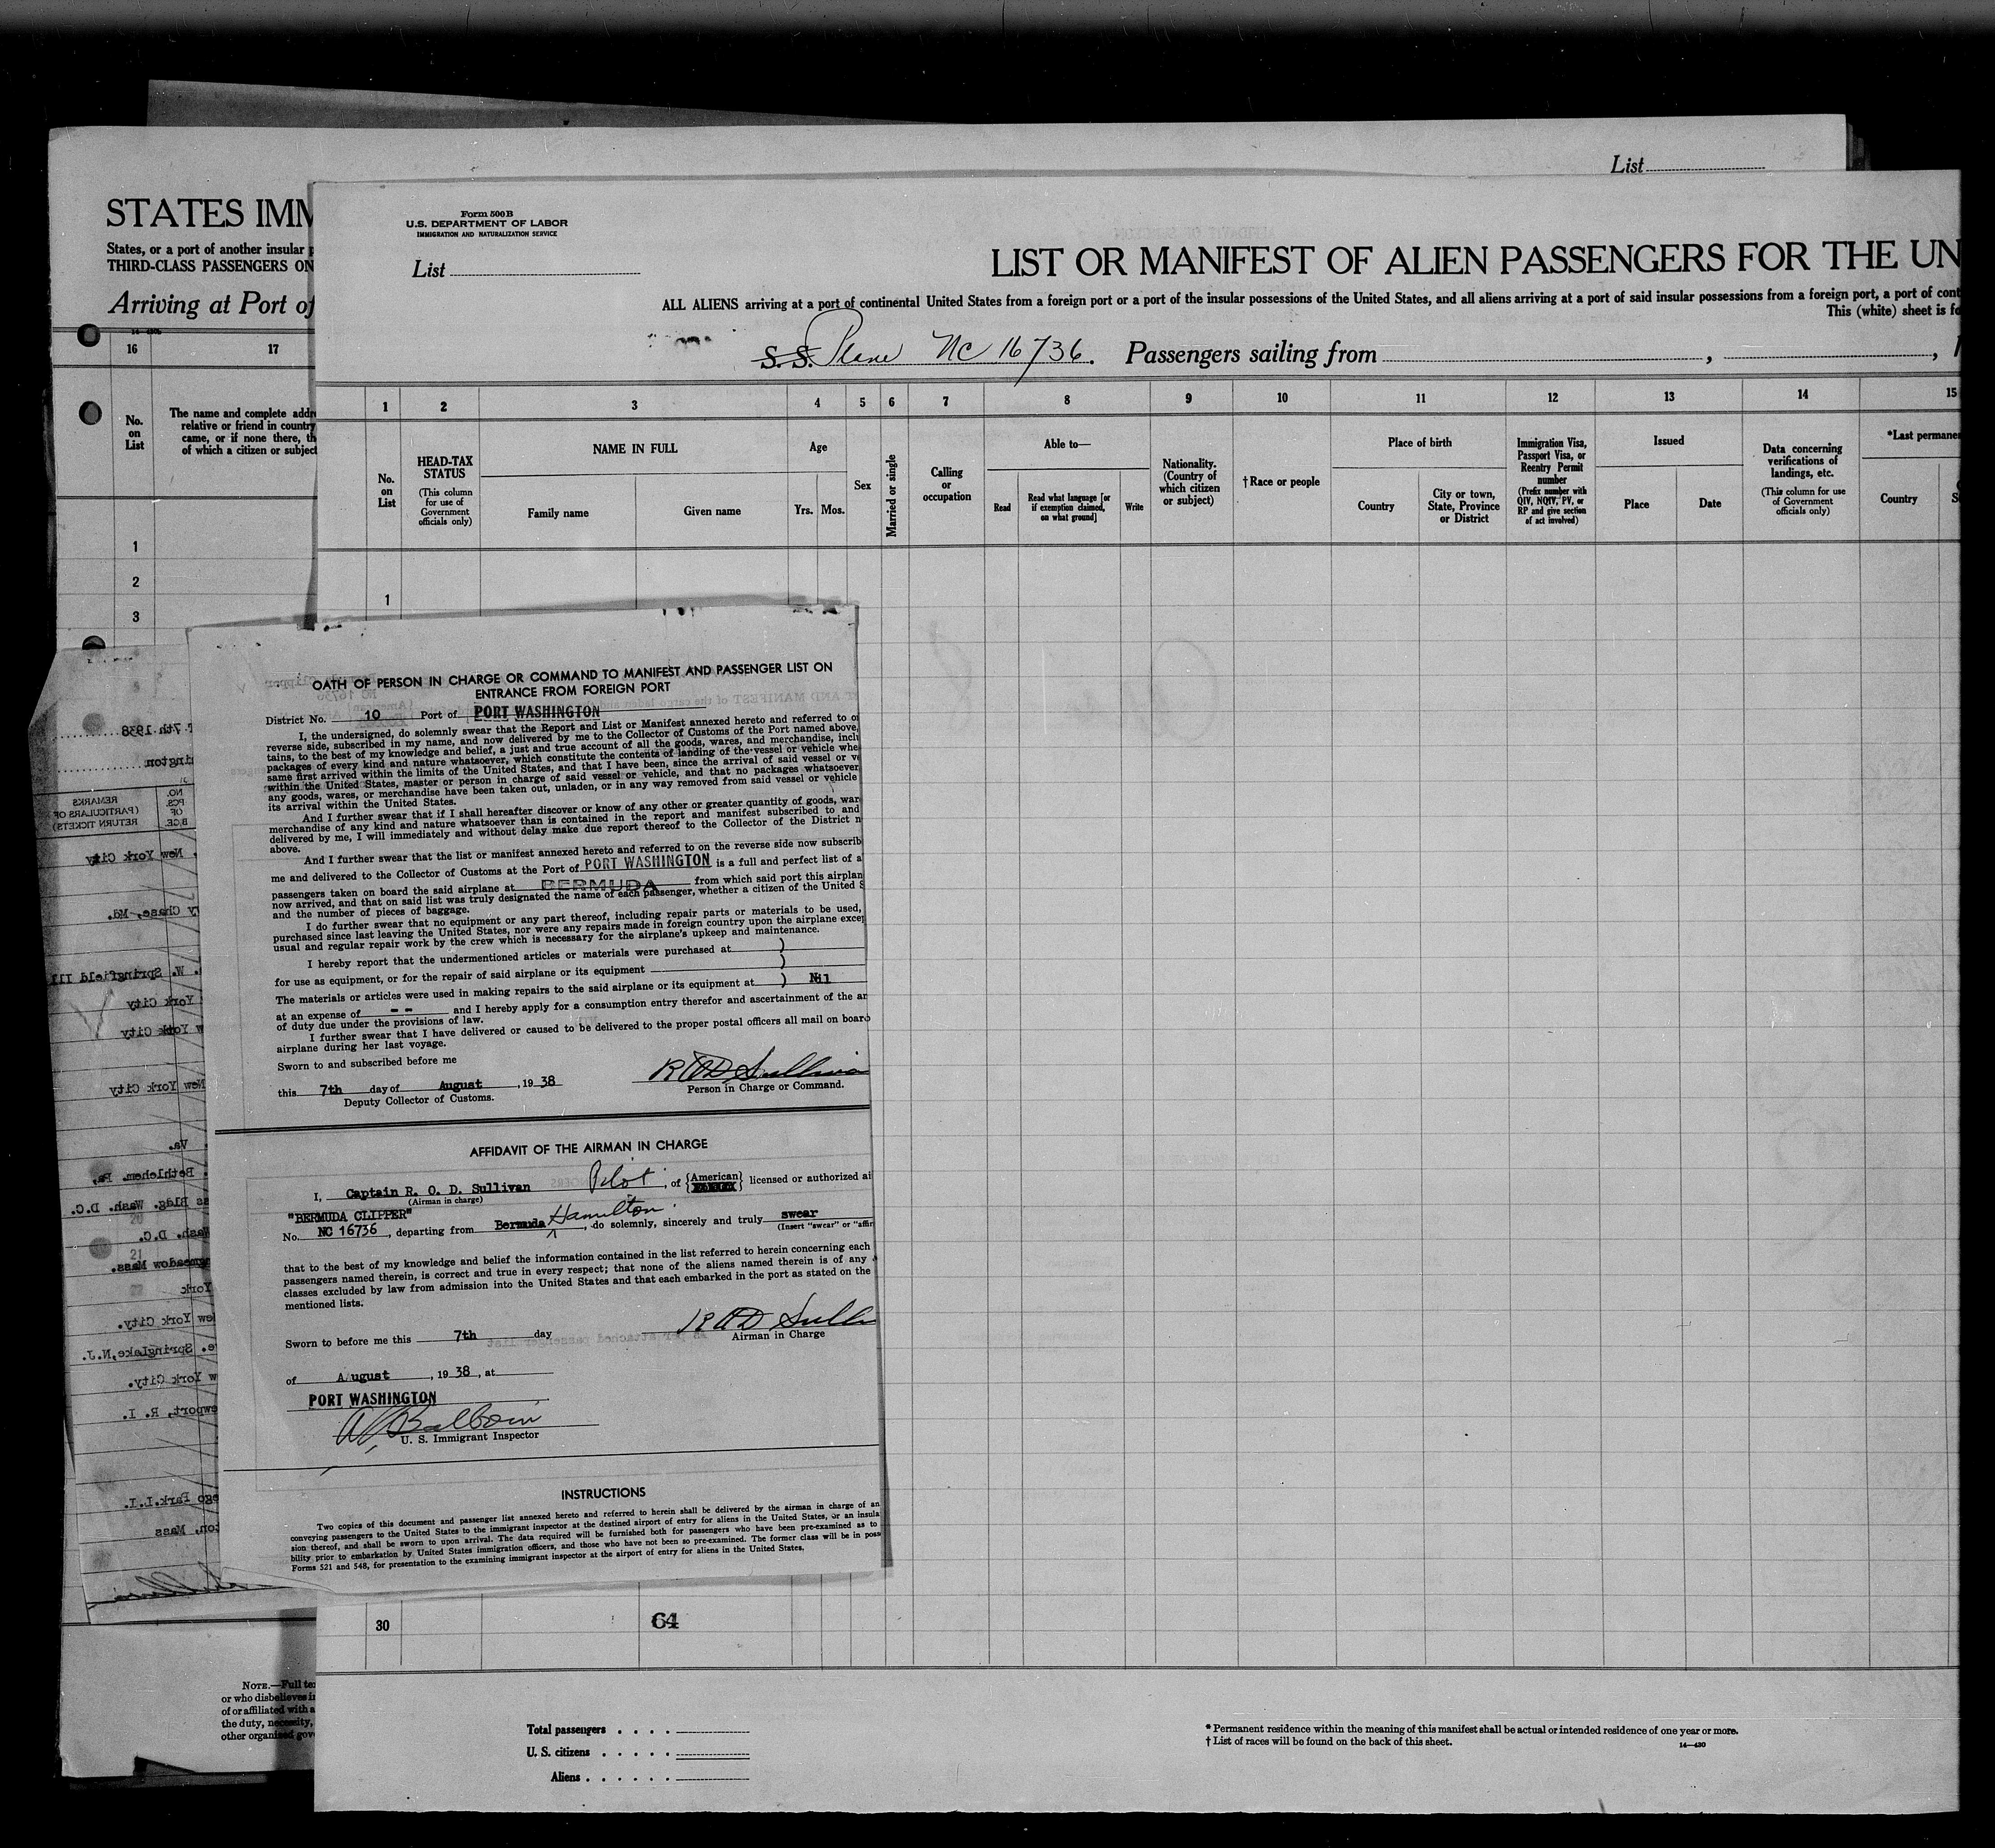 List
STATES IMM
States, or a port of another insular p
THIRD-CLASS PASSENGERS ON
Arriving at Port of
16 17
No. on List
The name and complete addre
relative or friend in country
came, or if none there, th
of which a citizen or subject
1
2
3
Form 500B
U.S. DEPARTMENT OF LABOR
IMMIGRATION AND NATURALIZATION SERVICE
List
LIST OR MANIFEST OF ALIEN PASSENGERS FOR THE UN
ALL ALIENS arriving at a port of continental United States from a foreign port or a port of the insular possessions of the United States, and all aliens arriving at a port of said insular possessions from a foreign port, a port of cont
This (white) sheet is fo
S. S. Plane NC 16736. Passengers sailing from , , 1
1 2 3 4 5 6 7 8 9 10 11 12 13 14 15
No. on List
HEAD-TAX STATUS
(This column for use of Government officials only)
NAME IN FULL
Family name Given name
Age
Yrs. Mos.
Sex
Married or single
Calling or occupation
Able to—
Read
Read what language [or if exemption claimed, on what ground]
Write
Nationality. (Country of which citizen or subject)
†Race or people
Place of birth
Country
City or town, State, Province or District
Immigration Visa, Passport Visa, or Reentry Permit number
(Prefix number with QIV, NQIV, PV, or RP and give section of act involved)
Issued
Place Date
Data concerning verifications of landings, etc.
(This column for use of Government officials only)
*Last permane
Country
1
OATH OF PERSON IN CHARGE OR COMMAND TO MANIFEST AND PASSENGER LIST ON
ENTRANCE FROM FOREIGN PORT
District No. 10 Port of PORT WASHINGTON
I, the undersigned, do solemnly swear that the Report and List or Manifest annexed hereto and referred to o
reverse side, subscribed in my name, and now delivered by me to the Collector of Customs of the Port named above,
tains, to the best of my knowledge and belief, a just and true account of all the goods, wares, and merchandise, incl
packages of every kind and nature whatsoever, which constitute the contents of landing of the vessel or vehicle whe
same first arrived within the limits of the United States, and that I have been, since the arrival of said vessel or ve
within the United States, master or person in charge of said vessel or vehicle, and that no packages whatsoever
any goods, wares, or merchandise have been taken out, unladen, or in any way removed from said vessel or vehicle
its arrival within the United States.
And I further swear that if I shall hereafter discover or know of any other or greater quantity of goods, war
merchandise of any kind and nature whatsoever than is contained in the report and manifest subscribed to and
delivered by me, I will immediately and without delay make due report thereof to the Collector of the District n
above.
And I further swear that the list or manifest annexed hereto and referred to on the reverse side now subscrib
me and delivered to the Collector of Customs at the Port of PORT WASHINGTON is a full and perfect list of a
passengers taken on board the said airplane at BERMUDA from which said port this airplan
now arrived, and that on said list was truly designated the name of each passenger, whether a citizen of the United S
and the number of pieces of baggage.
I do further swear that no equipment or any part thereof, including repair parts or materials to be used,
purchased since last leaving the United States, nor were any repairs made in foreign country upon the airplane excep
usual and regular repair work by the crew which is necessary for the airplane's upkeep and maintenance.
I hereby report that the undermentioned articles or materials were purchased at )
for use as equipment, or for the repair of said airplane or its equipment )
The materials or articles were used in making repairs to the said airplane or its equipment at ) Nil
at an expense of - - and I hereby apply for a consumption entry therefor and ascertainment of the ar
of duty due under the provisions of law.
I further swear that I have delivered or caused to be delivered to the proper postal officers all mail on board
airplane during her last voyage.
Sworn to and subscribed before me
R O D Sullivan
this 7th day of August , 19 38
Person in Charge or Command.
Deputy Collector of Customs.
AFFIDAVIT OF THE AIRMAN IN CHARGE
I, Captain R. O. D. Sullivan Pilot , of {American} licensed or authorized ai
(Airman in charge)
"BERMUDA CLIPPER"
No. NC 16736 , departing from Bermuda Hamilton , do solemnly, sincerely and truly swear
(Insert "swear" or "affir
that to the best of my knowledge and belief the information contained in the list referred to herein concerning each
passengers named therein, is correct and true in every respect; that none of the aliens named therein is of any
classes excluded by law from admission into the United States and that each embarked in the port as stated on the
mentioned lists.
R O D Sulli
Sworn to before me this 7th day
Airman in Charge
of August , 19 38 , at
PORT WASHINGTON
U. S. Immigrant Inspector
INSTRUCTIONS
Two copies of this document and passenger list annexed hereto and referred to herein shall be delivered by the airman in charge of an
conveying passengers to the United States to the immigrant inspector at the destined airport of entry for aliens in the United States, or an insula
sion thereof, and shall be sworn to upon arrival. The data required will be furnished both for passengers who have been pre-examined as to
bility prior to embarkation by United States immigration officers, and those who have not been so pre-examined. The former class will be in poss
Forms 521 and 548, for presentation to the examining immigrant inspector at the airport of entry for aliens in the United States.
7th 1938
ington
NO. PCS. OF BGE.
REMARKS
(PARTICULARS OF
RETURN TICKETS)
. New York City
y Chase, Md.
. W. Springfield Ill
York City
w York City
New York City
Va.
. Bethlehem. Pa.
ss Bldg. Wash. D.C.
Wash. D.C.
20
21
gmeadow Mass.
York
New York City.
e. Springlake, N.J.
w York City.
ewport, R. I.
ego Park.L.I.
ton, Mass
30
64
NOTE.—Full te
or who disbelieves i
of or affiliated with a
the duty, necessity,
other organized gov
Total passengers . . . .
U. S. citizens . . . . .
Aliens . . . . . .
* Permanent residence within the meaning of this manifest shall be actual or intended residence of one year or more.
† List of races will be found on the back of this sheet.
14—430